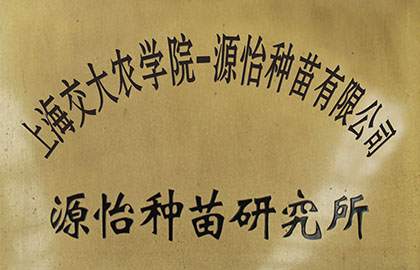 上海交大农学院-源怡种苗有限公司
源怡种苗研究所